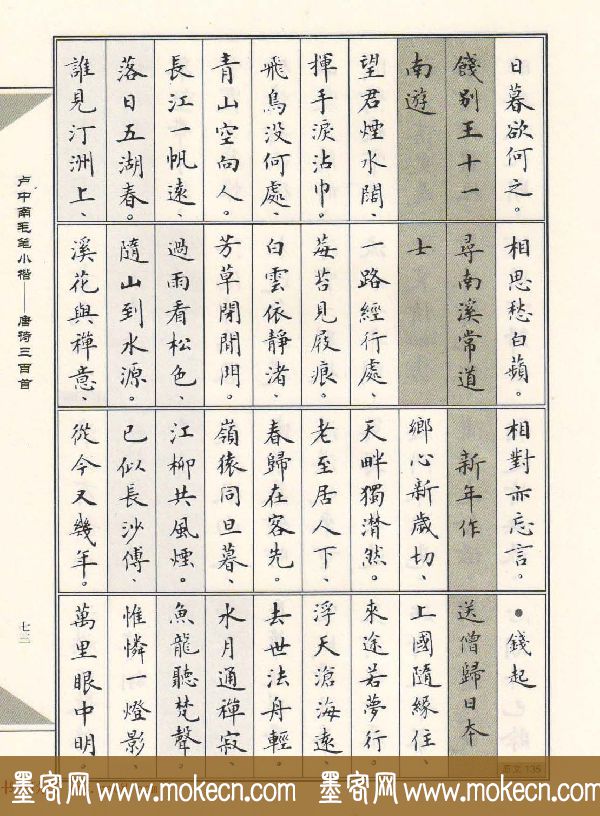 日暮欲何之。
餞别王十一
南遊
望君煙水闊、
揮手淚沾巾。
飛鳥没何處、
青山空向人。
長江一帆遠、
落日五湖春。
誰見汀洲上、
相思愁白蘋。
尋南溪常道
士
一路經行處、
莓苔見屐痕。
白雲依靜渚、
芳草閉閒門。
過雨看松色、
隨山到水源。
溪花與禪意、
相對亦忘言。
新年作
鄉心新歲切、
天畔獨潸然。
老至居人下、
春歸在客先。
嶺猿同旦暮、
江柳共風煙。
已似長沙傅、
從今又幾年。
●錢起
送僧歸日本
上國隨緣住、
來途若夢行。
浮天滄海遠、
去世法舟輕。
水月通禪寂、
魚龍聽梵聲。
惟憐一燈影、
萬里眼中明。
卢中南毛笔小楷——唐诗三百首
七三
原文 135
墨客网 www.mokecn.com 墨客网 www.mokecn.com